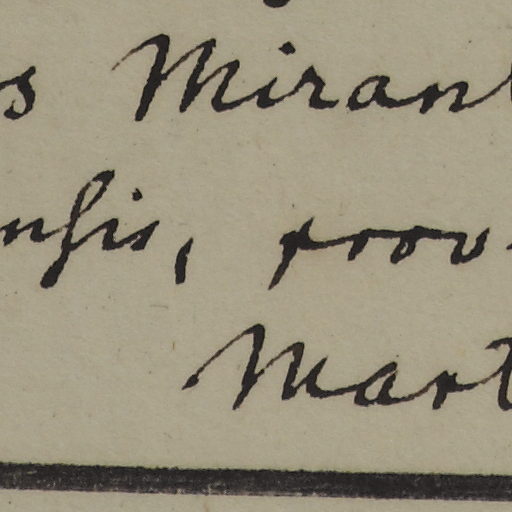 s Miran
nſis, prov
Mart